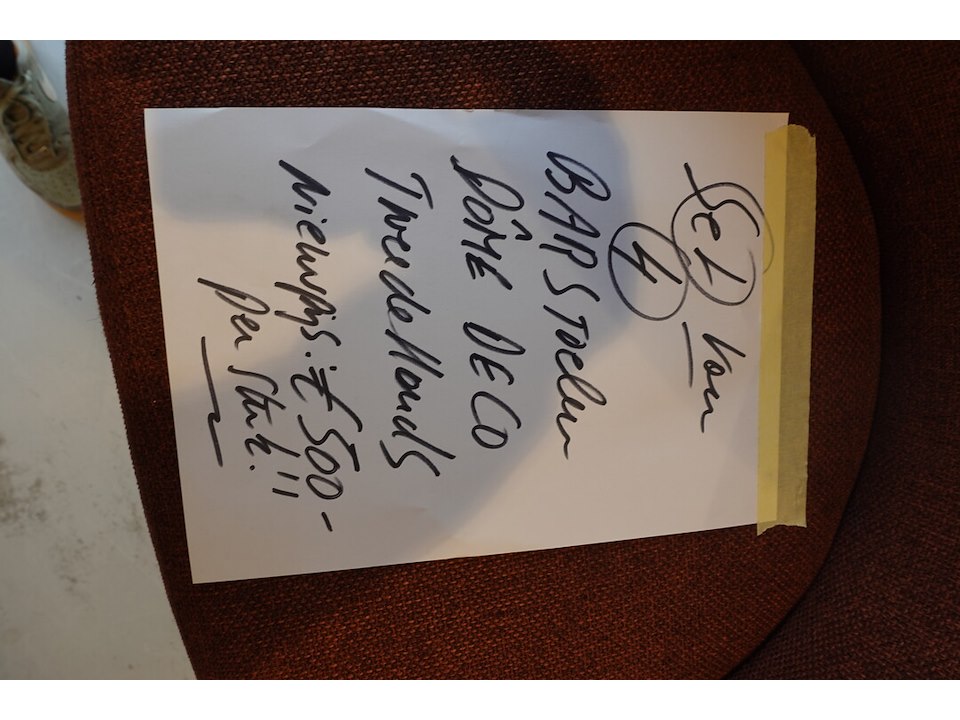 Set van
4
BARStoelen
DÔME DECO
TweedeHands
Nieuwprijs: € 500 -
per stuk!!